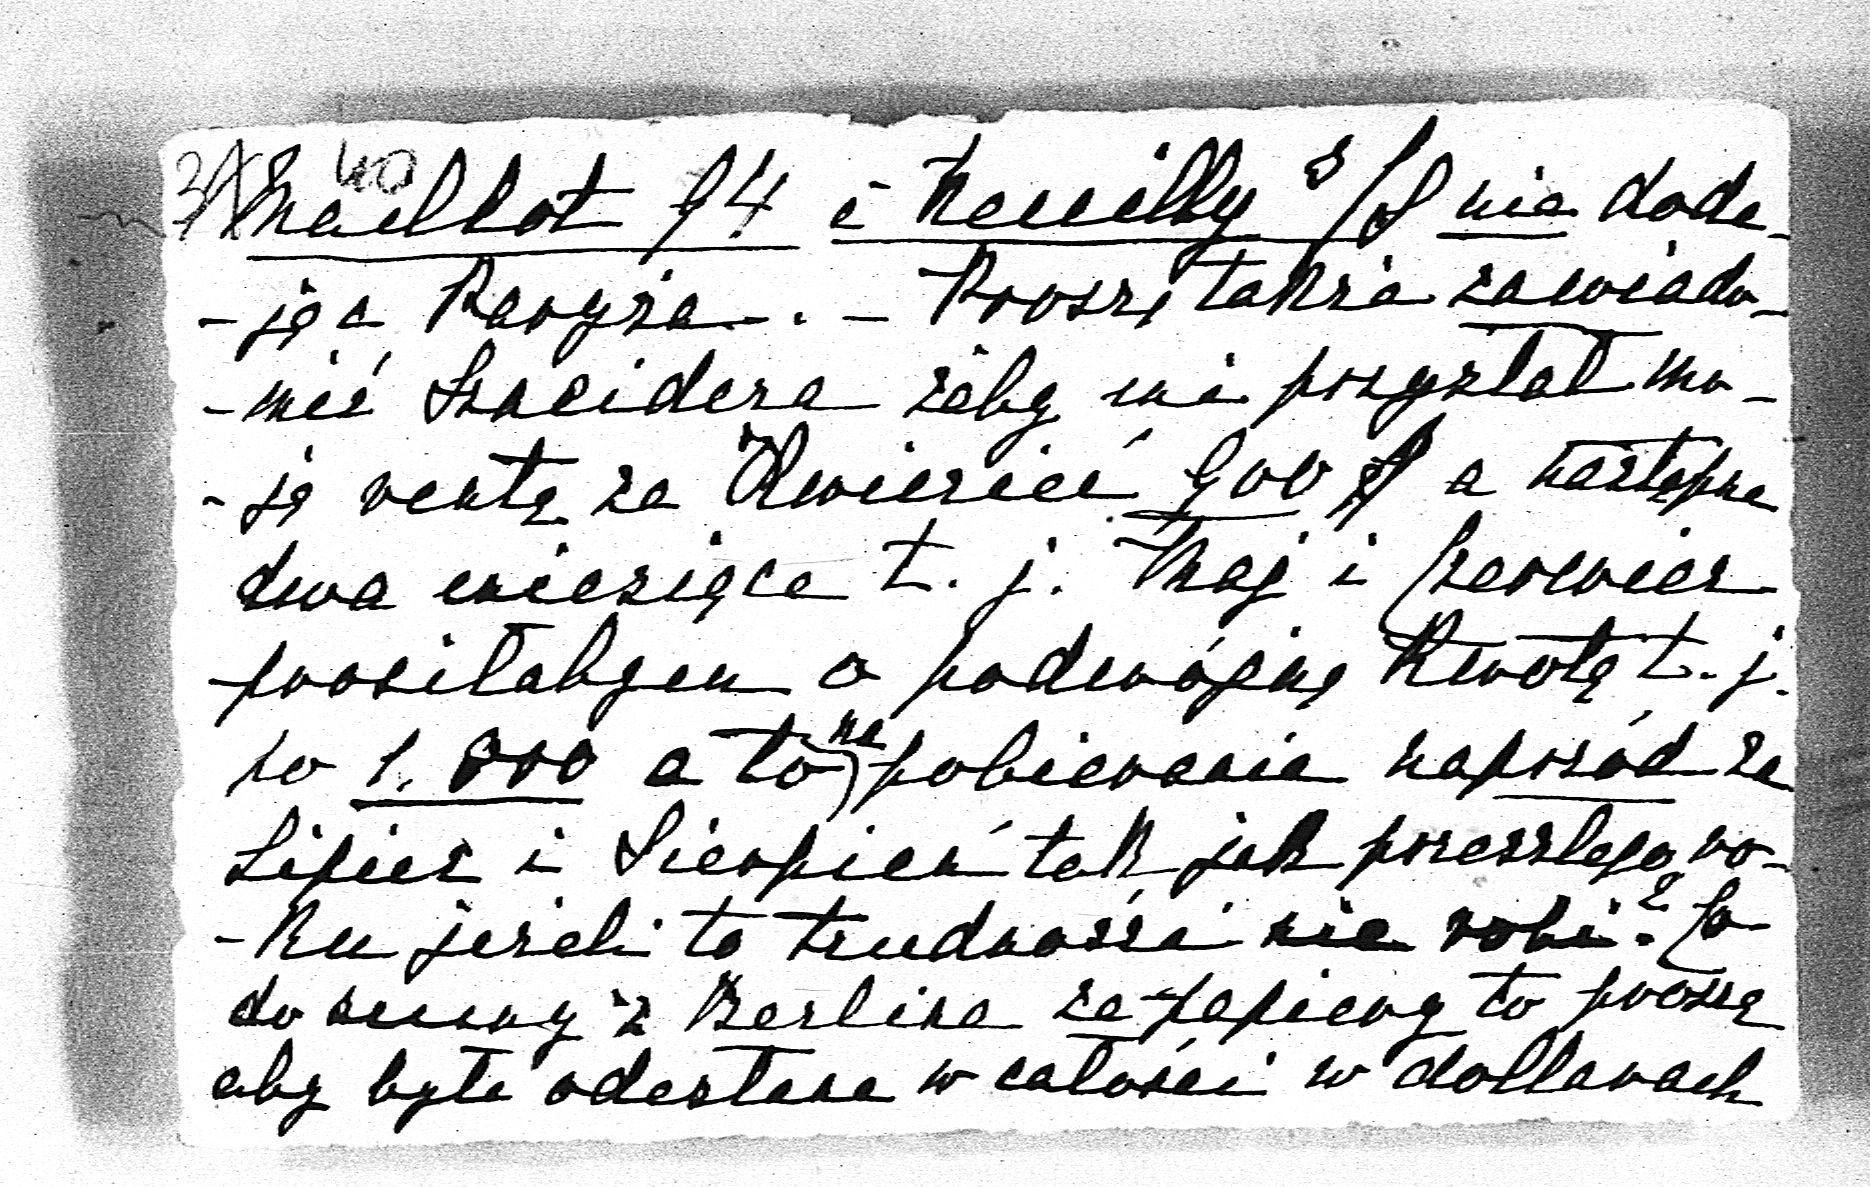 40
Maillot 94 i Neuilly s/S nie doda-
-jąc Paryża. - Proszę także zawiado-
-mić Szneidera żeby mi przysłał mo-
-ję rentę za Kwiecień 900 a następne
dwa miesiące t. j. Maj i Czerwiec
prosiłabym o podwójną Kwotę t. j.
po 1.800 a to na pobieranie naprzód za
Lipiec i Sierpień tak jak przeszłego ro-
-ku jeżeli to trudności nie robi? Co
do sumy z Berlina za papiery to proszę
aby była odesłana w całości w dollarach